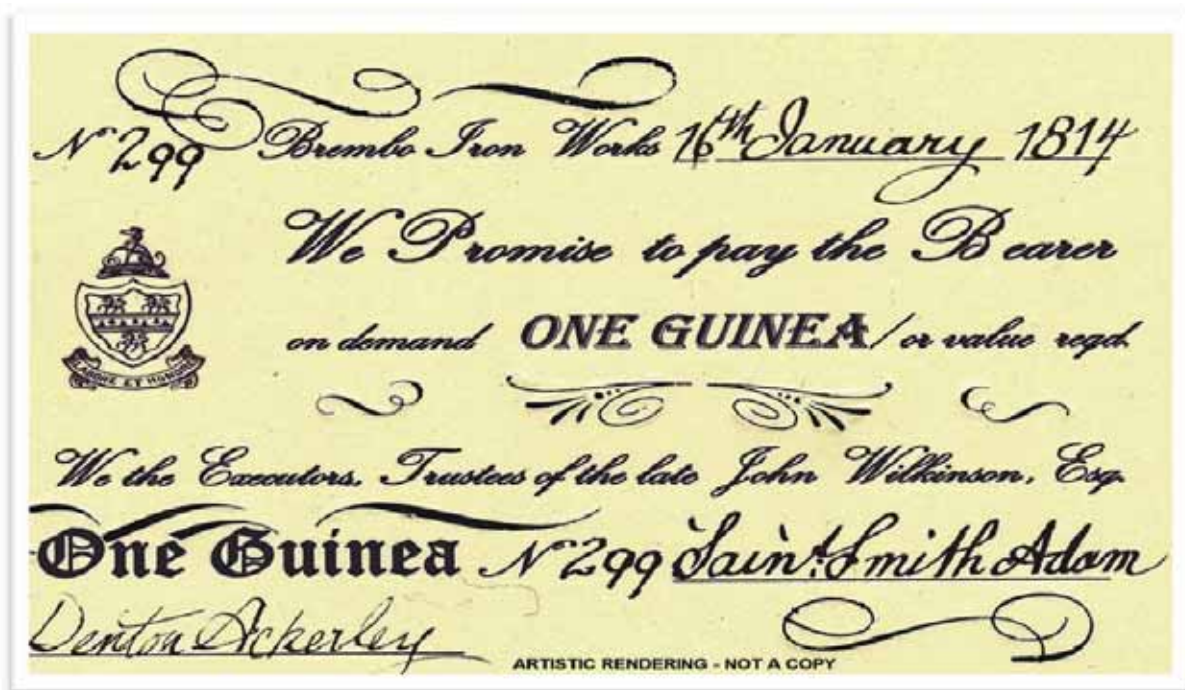 No 299 Brembo Iron Works 16th January 1814
We Promise to pay the Bearer
on demand ONE GUINEA / or value regd.
LABORE ET HONORE
We the Executors, Trustees of the late John Wilkinson, Esq.
One Guinea No 299 Sain.t Smith Adam
Denton Ackerley
ARTISTIC RENDERING - NOT A COPY